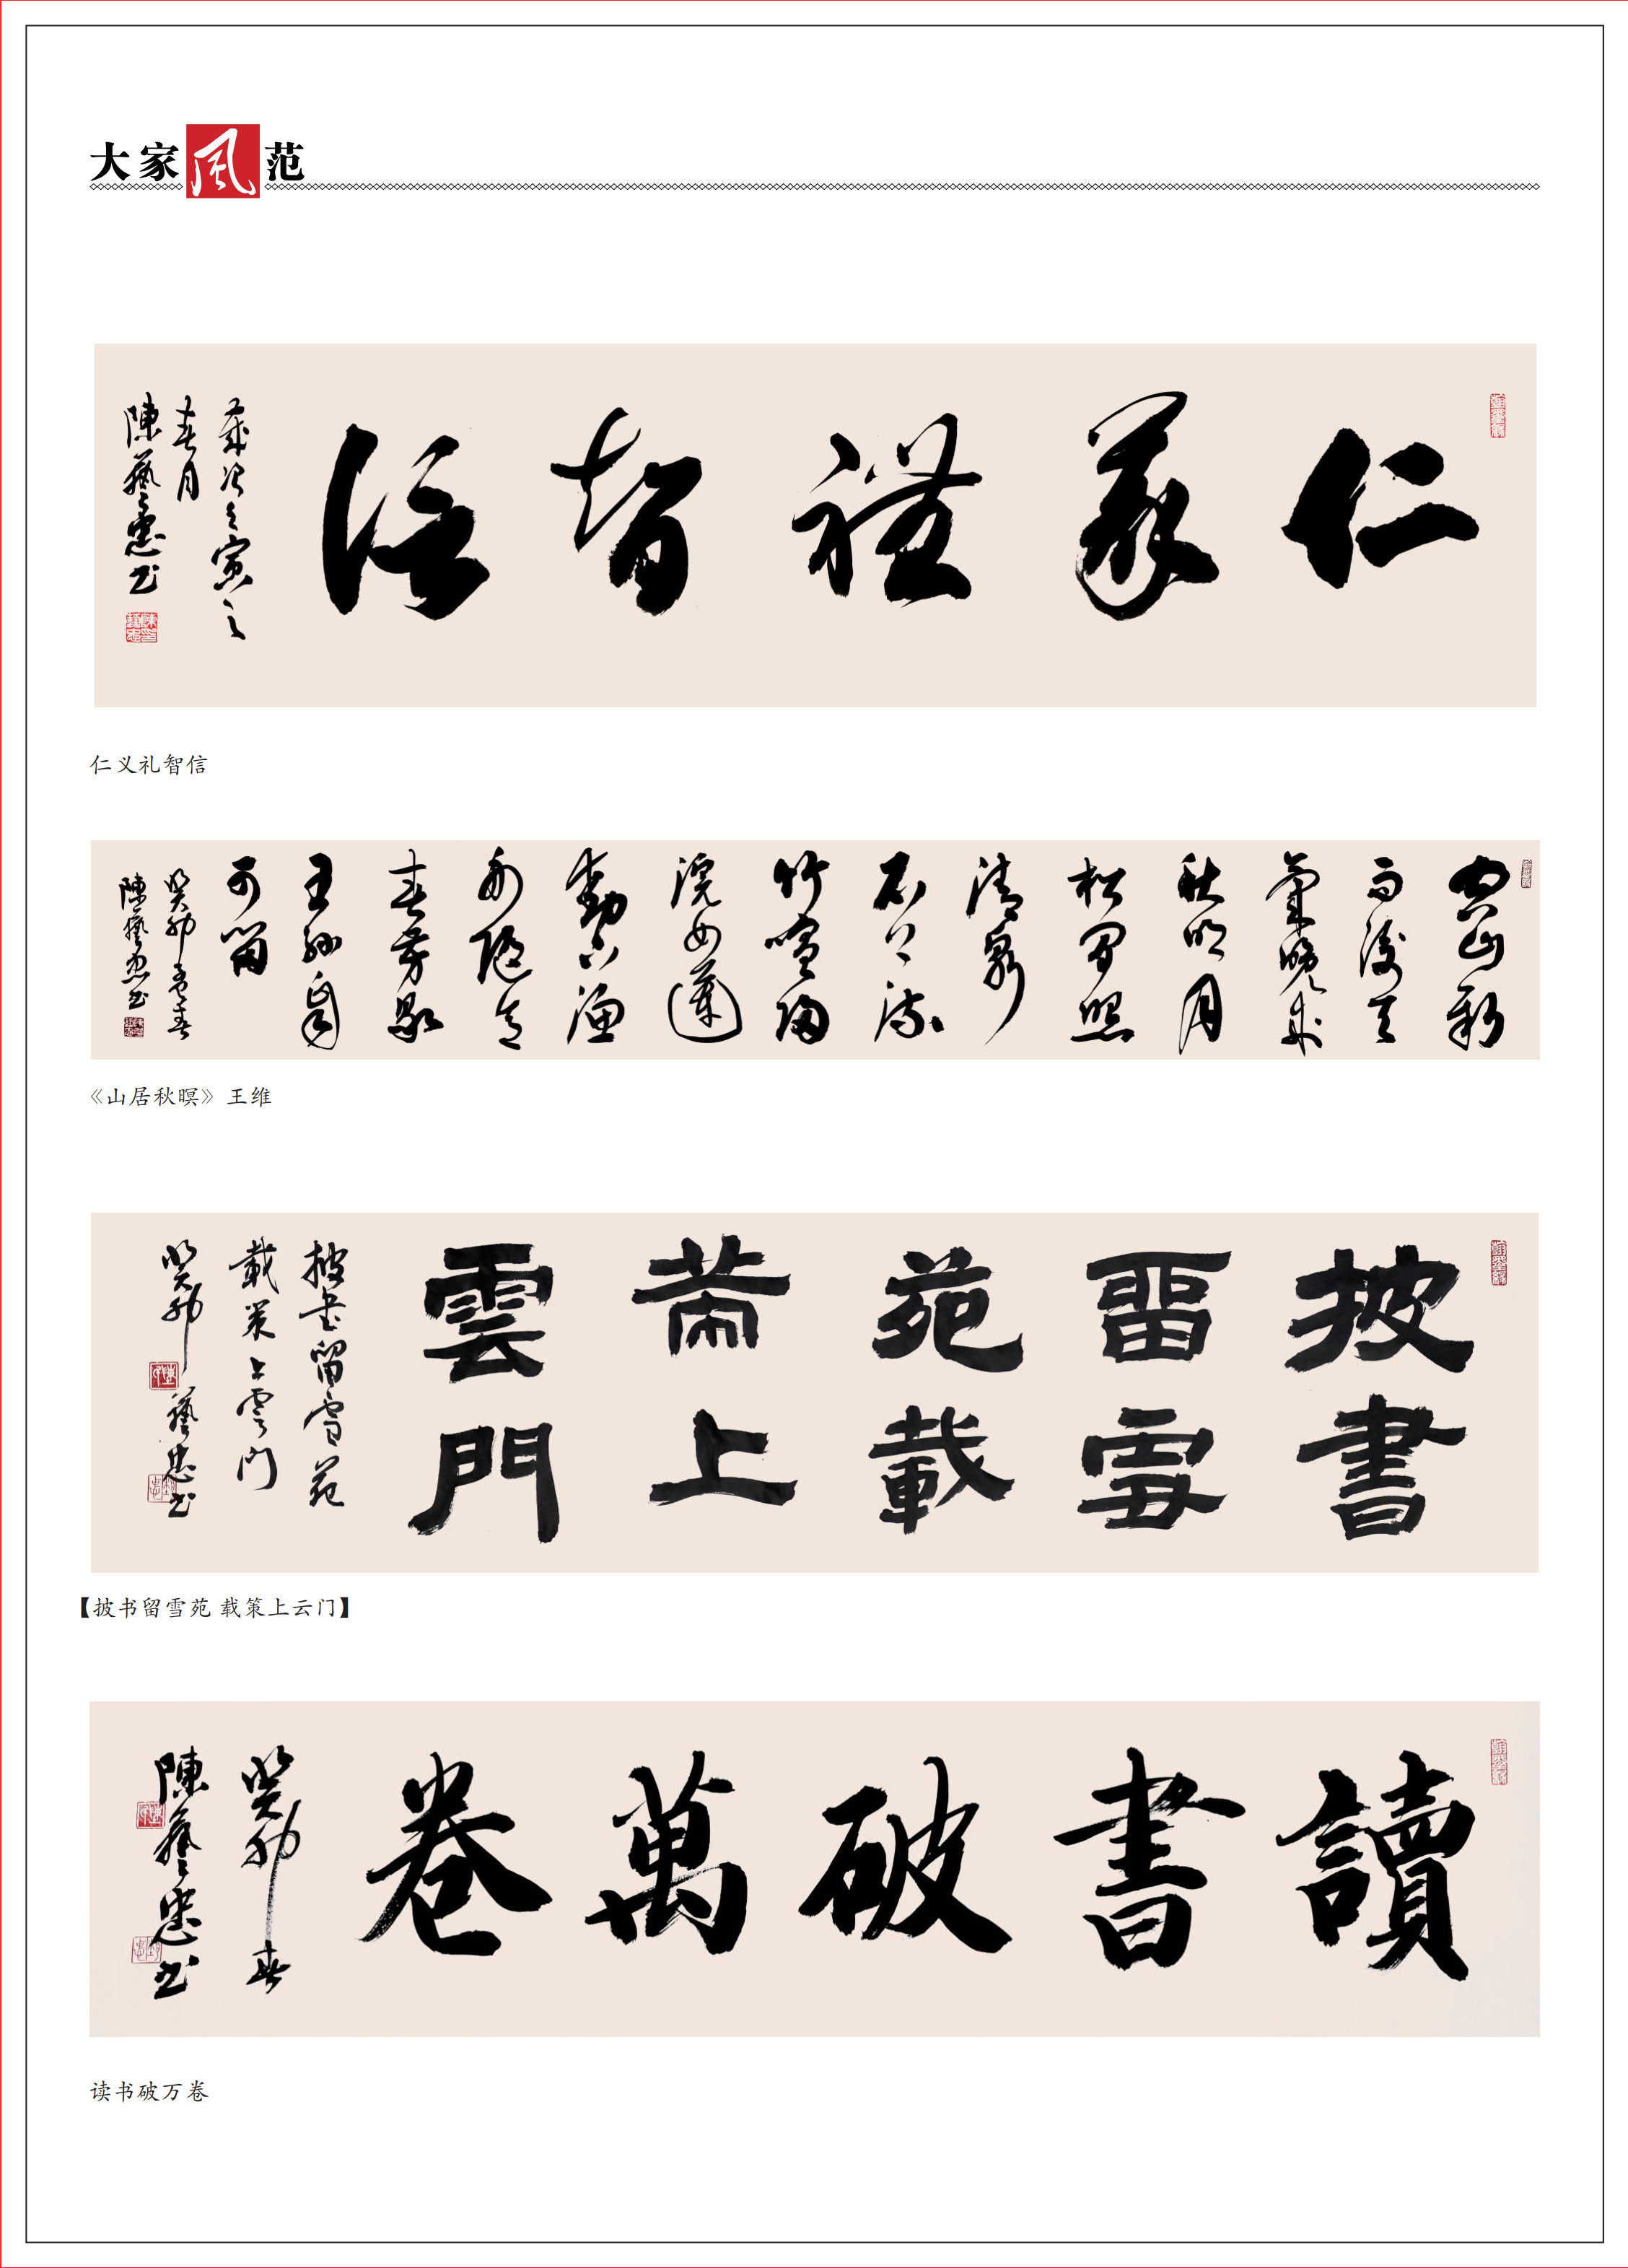 大家風范
仁義禮智信
歲次壬寅之
春月
陳藝忠书
仁义礼智信
空山新
雨後天
氣晚来
秋明月
松間照
清泉
石上流
竹喧歸
浣女蓮
動下漁
舟隨意
春芳歇
王孫自
可留
癸卯孟春
陳藝忠书
《山居秋暝》王维
披書
留雪
苑載
策上
雲門
披书留雪苑
載策上雲门
癸卯
藝忠书
【披书留雪苑 载策上云门】
讀書破萬卷
癸卯春
陳藝忠书
读书破万卷